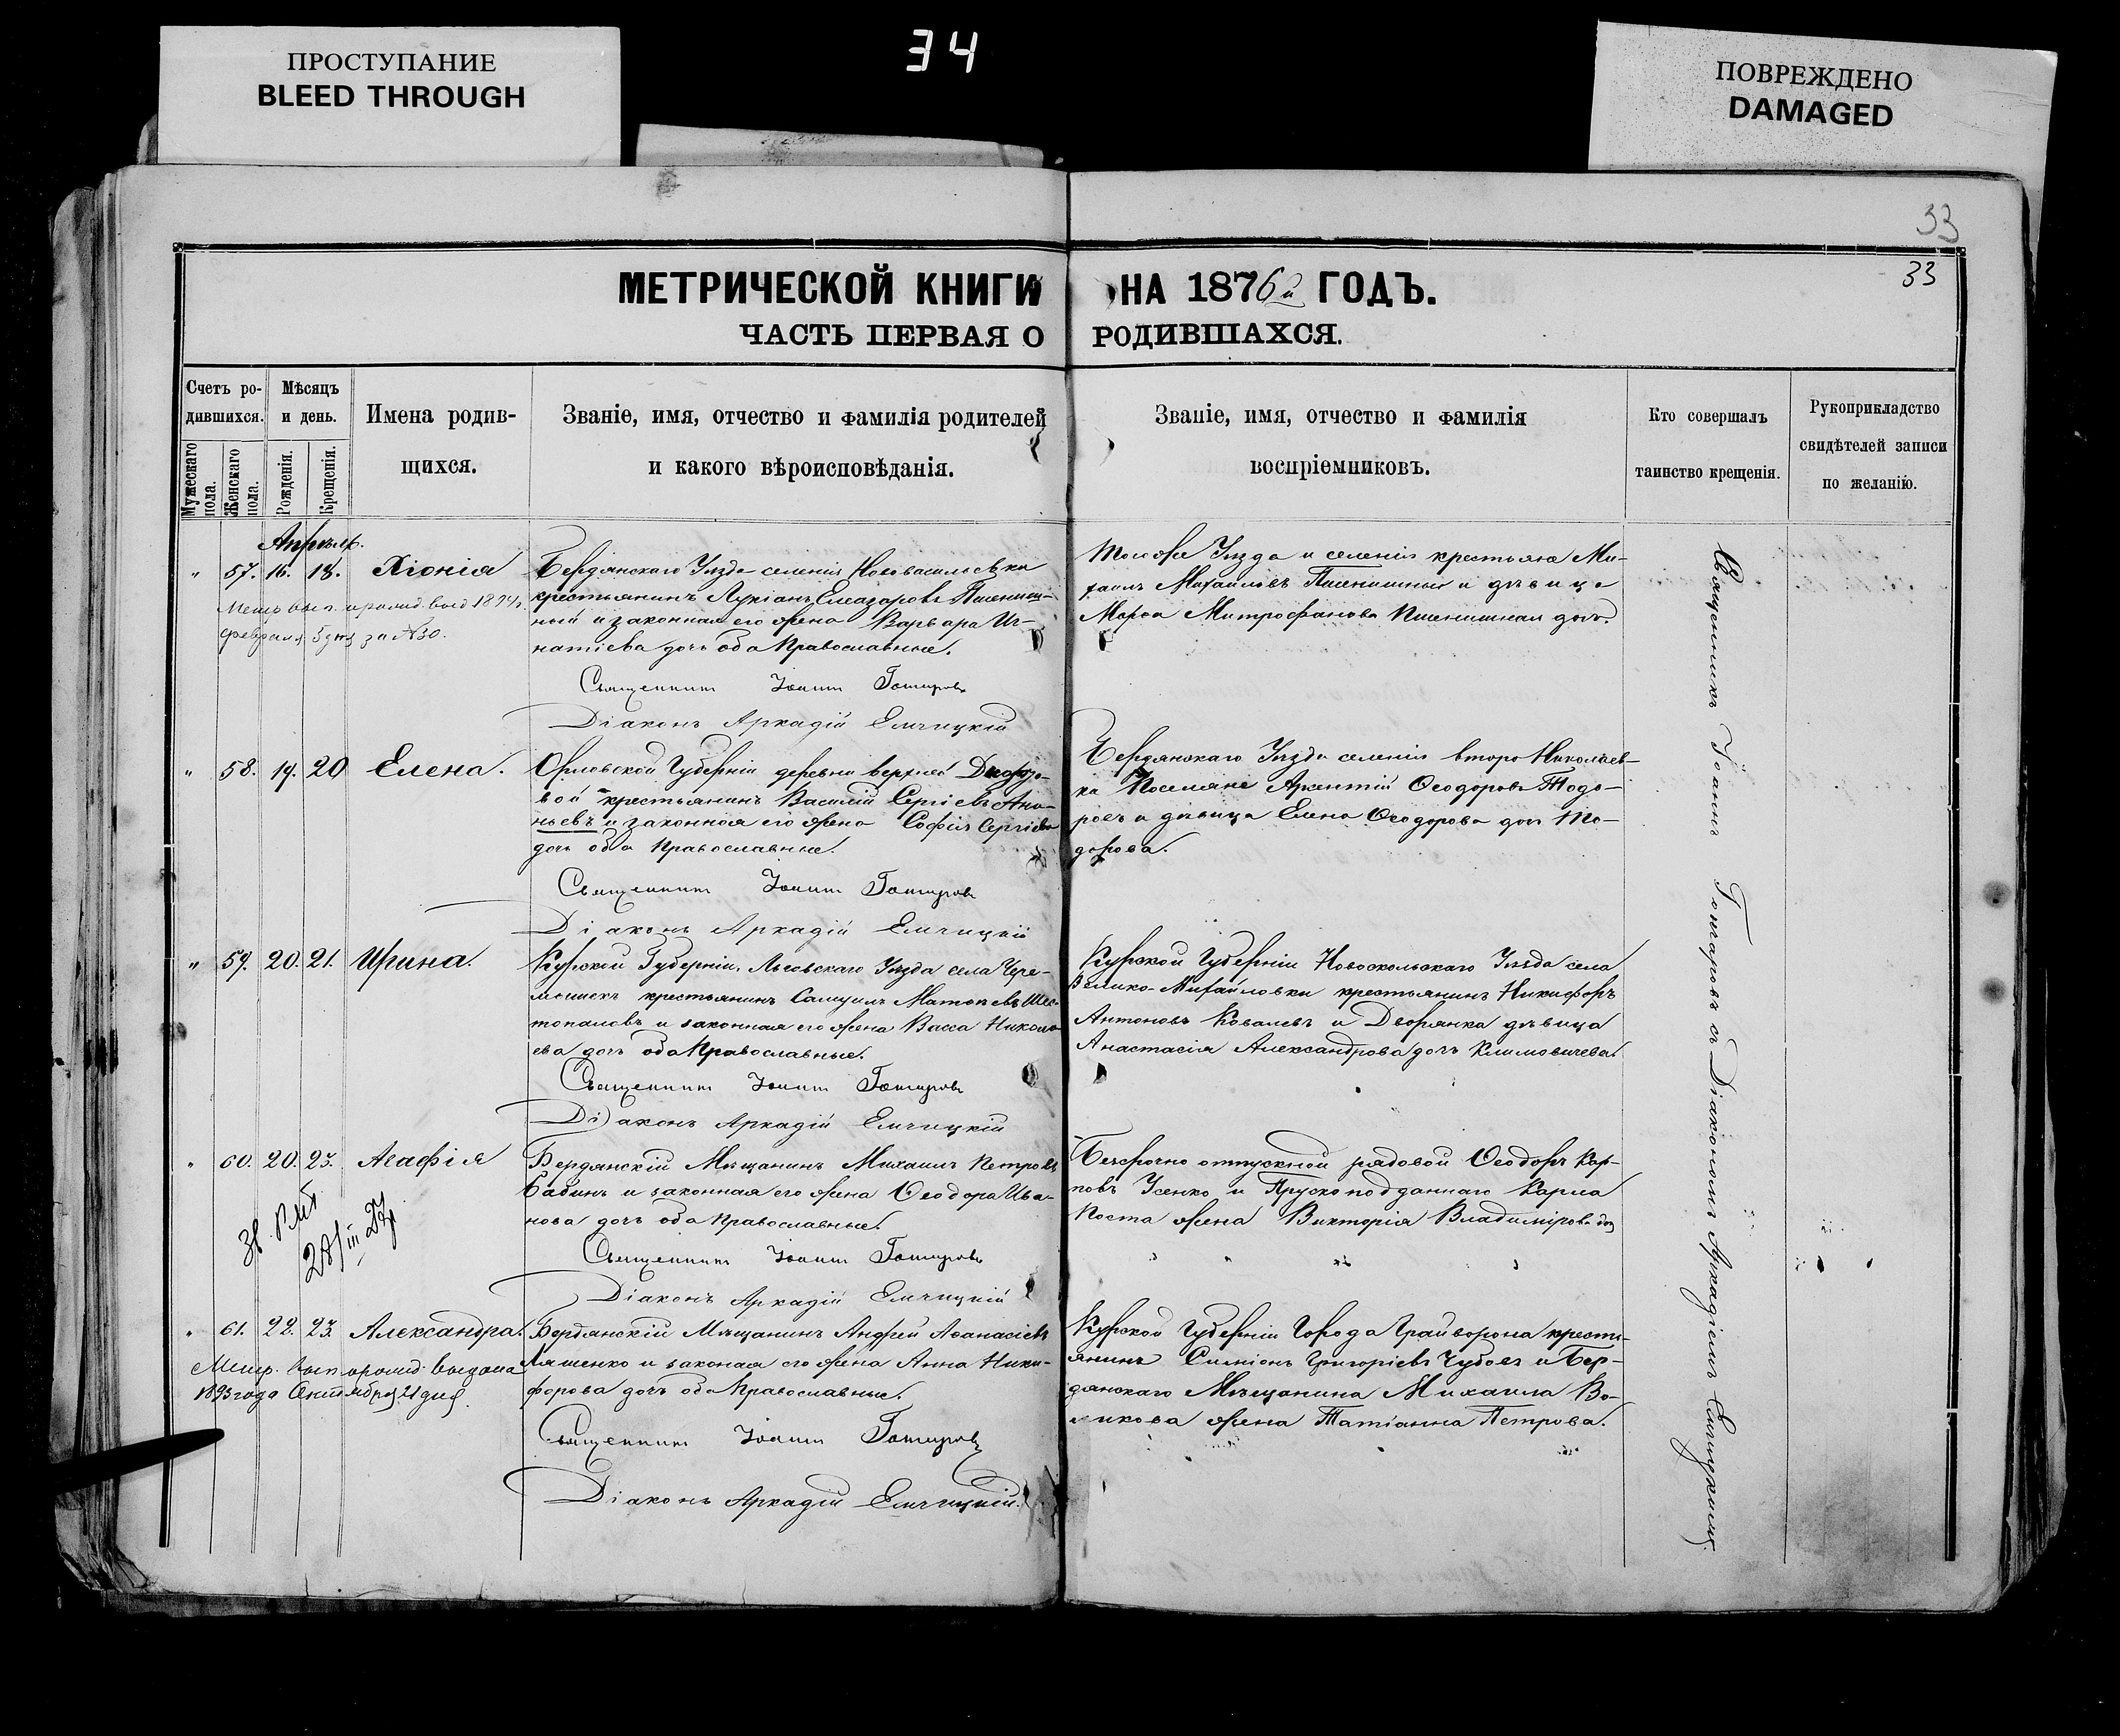 ПРОСТУПАНИЕ
BLEED THROUGH
34
ПОВРЕЖДЕНО
DAMAGED
33
33
МЕТРИЧЕСКОЙ КНИГИ НА 1876й ГОДЪ.
ЧАСТЬ ПЕРВАЯ О РОДИВШАХСЯ.
Счетъ ро-
дившихся.
Мужескаго пола.
Женскаго пола.
Мѣсяцъ
и день.
Рожденія.
Крещенія.
Имена родив-
щихся.
Званіе, имя, отчество и фамилія родителей
и какого вѣроисповѣданія.
Званіе, имя, отчество и фамилія
воспріемниковъ.
Кто совершалъ
таинство крещенія.
Рукоприкладство
свидѣтелей записи
по желанію.
Апрѣль.
" 57. 16. 18. Хіонія
Метр. вып. выд 1894 г.
февраля 5 дня за №30.
Бердянскаго Уѣзда селенія Нововасильевки
крестьянинъ Лукіанъ Елеазаровъ Пшенич-
ный и законная его жена Варвара Иг-
натіева дочь оба Православные.
Священникъ Іоаннъ Гончаровъ
Діаконъ Аркадій Емчицкій
Того же Уѣзда и селенія крестьяне Ми-
хаилъ Михайловъ Пшеничный и дѣвица
Марѳа Митрофанова Пшеничная дочь.
" 58. 19. 20 Елена.
Орловской Губерніи деревни верхней
вой крестьянинъ Василій Сергіевъ Ана-
ньевъ и законная его жена Софія Сергіева
дочь оба Православные.
Священникъ Іоаннъ Гончаровъ
Діаконъ Аркадій Емчицкій
Бердянскаго Уѣзда селенія второ Николаев-
ка Поселяне Арсентій Ѳеодоровъ Тодо-
ровъ и дѣвица Елена Ѳеодорова дочь То-
дорова.
" 59. 20. 21. Ирина.
Курской Губерніи, Льговскаго Уѣзда села Чере-
мошекъ крестьянинъ Самуилъ Матѳіевъ Шес-
топаловъ и законная его жена Васса Никола-
ева дочь оба Православные.
Священникъ Іоаннъ Гончаровъ
Діаконъ Аркадій Емчицкій
Курской Губерніи Новооскольскаго Уѣзда села
Велико-Михайловки крестьянинъ Никифоръ
Антоновъ Ковалевъ и Дворянка дѣвица
Анастасія Александрова дочь Климовичева.
" 60. 20. 23. Агафія
Бердянскій Мѣщанинъ Михаилъ Петровъ
Бабинъ и законная его жена Ѳеодора Ива-
нова дочь оба Православные.
Священникъ Іоаннъ Гончаровъ
Діаконъ Аркадій Емчицкій
Безсрочно отпускной рядовой Ѳеодоръ Кар-
повъ Усенко и Прускоподданнаго Карла
Поста жена Викторія Владимірова доч
" 61. 22. 23. Александра.
Метр. вып. выдана
1893 года Октября 21 дня.
Бердянскій Мѣщанинъ Андрей Аѳанасіевъ
Ляшенко и законая его жена Анна Ники-
форова дочь оба Православные.
Священникъ Іоаннъ Гончаровъ
Діаконъ Аркадій Емчицкій
Курской Губерніи Города Грайворона крестья-
янинъ Симеонъ Григоріевъ Чубовъ и Бер-
дянскаго Мѣщанина Михаила
жена Татіанна Петрова.
Священникъ Іоаннъ Гончаровъ съ Діакономъ Аркадіемъ Емчицкимъ.